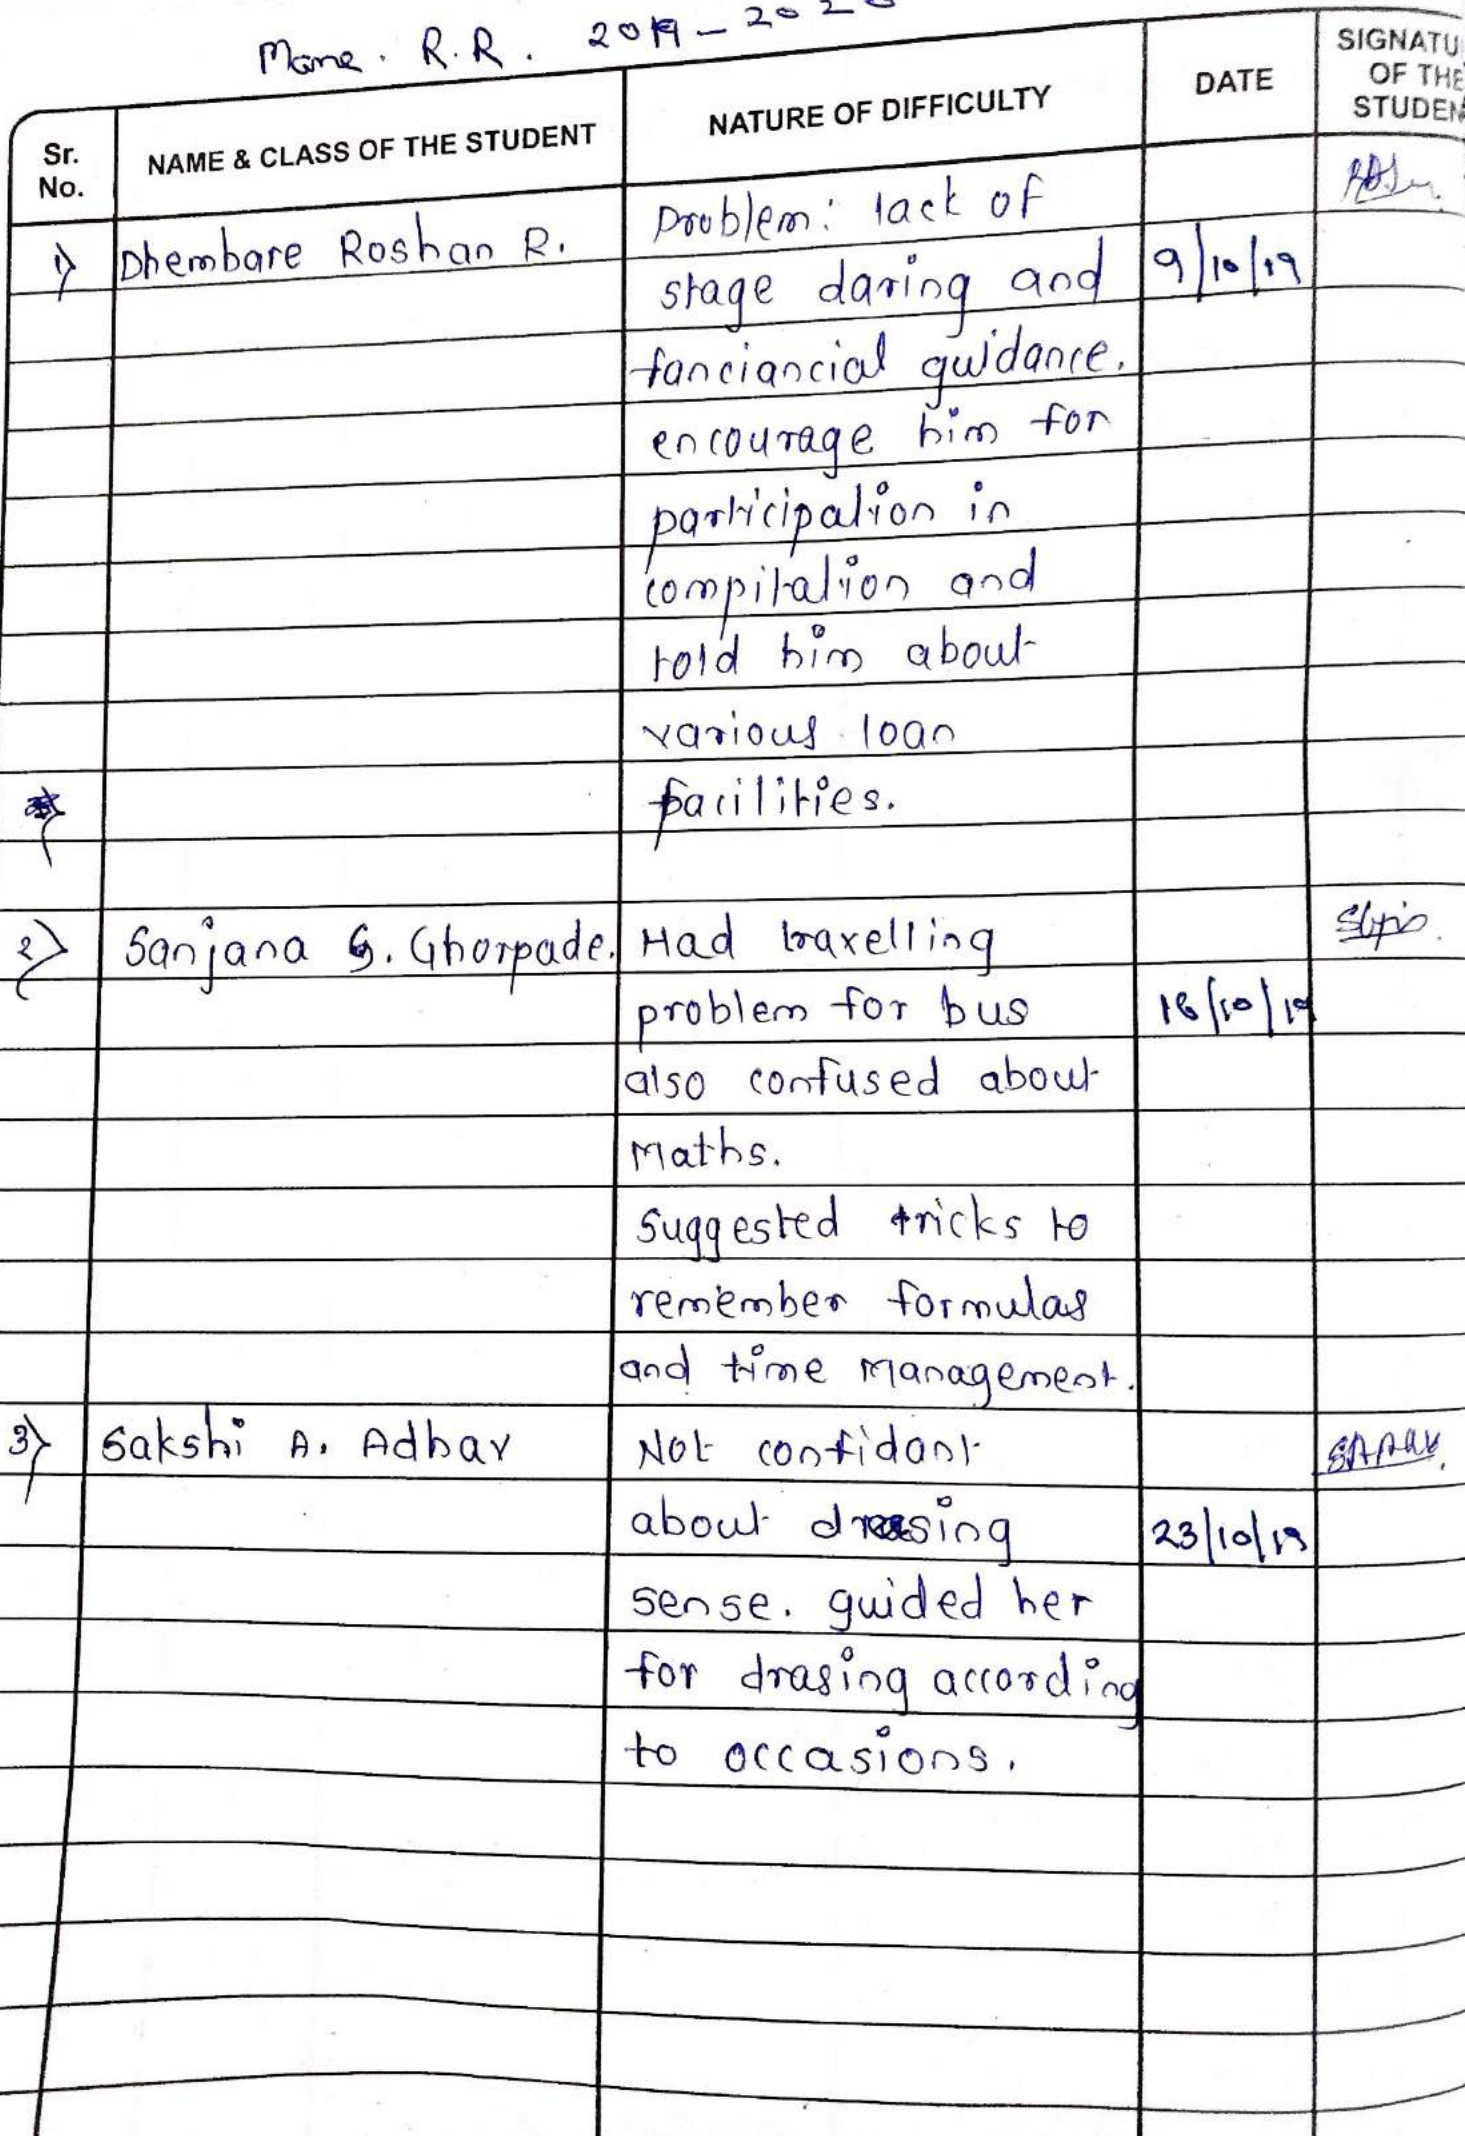 Mane. R.R. 2019 - 2020
Sr. No.
NAME & CLASS OF THE STUDENT
NATURE OF DIFFICULTY
DATE
SIGNATU
OF THE
STUDEN
1) Dhembare Roshan R.
Problem: lack of
stage daring and 9/10/19
fanciancial guidance.
encourage him for
participation in
compitation and
told him about
various loan
facilities.
2) Sanjana G. Ghorpade. Had travelling
problem for bus 16/10/19
also confused about
Maths.
Suggested tricks to
remember formulas
and time Management.
3) Sakshi A. Adhav Not confidant
about dressing 23/10/19
sense. guided her
for drasing according
to occasions.